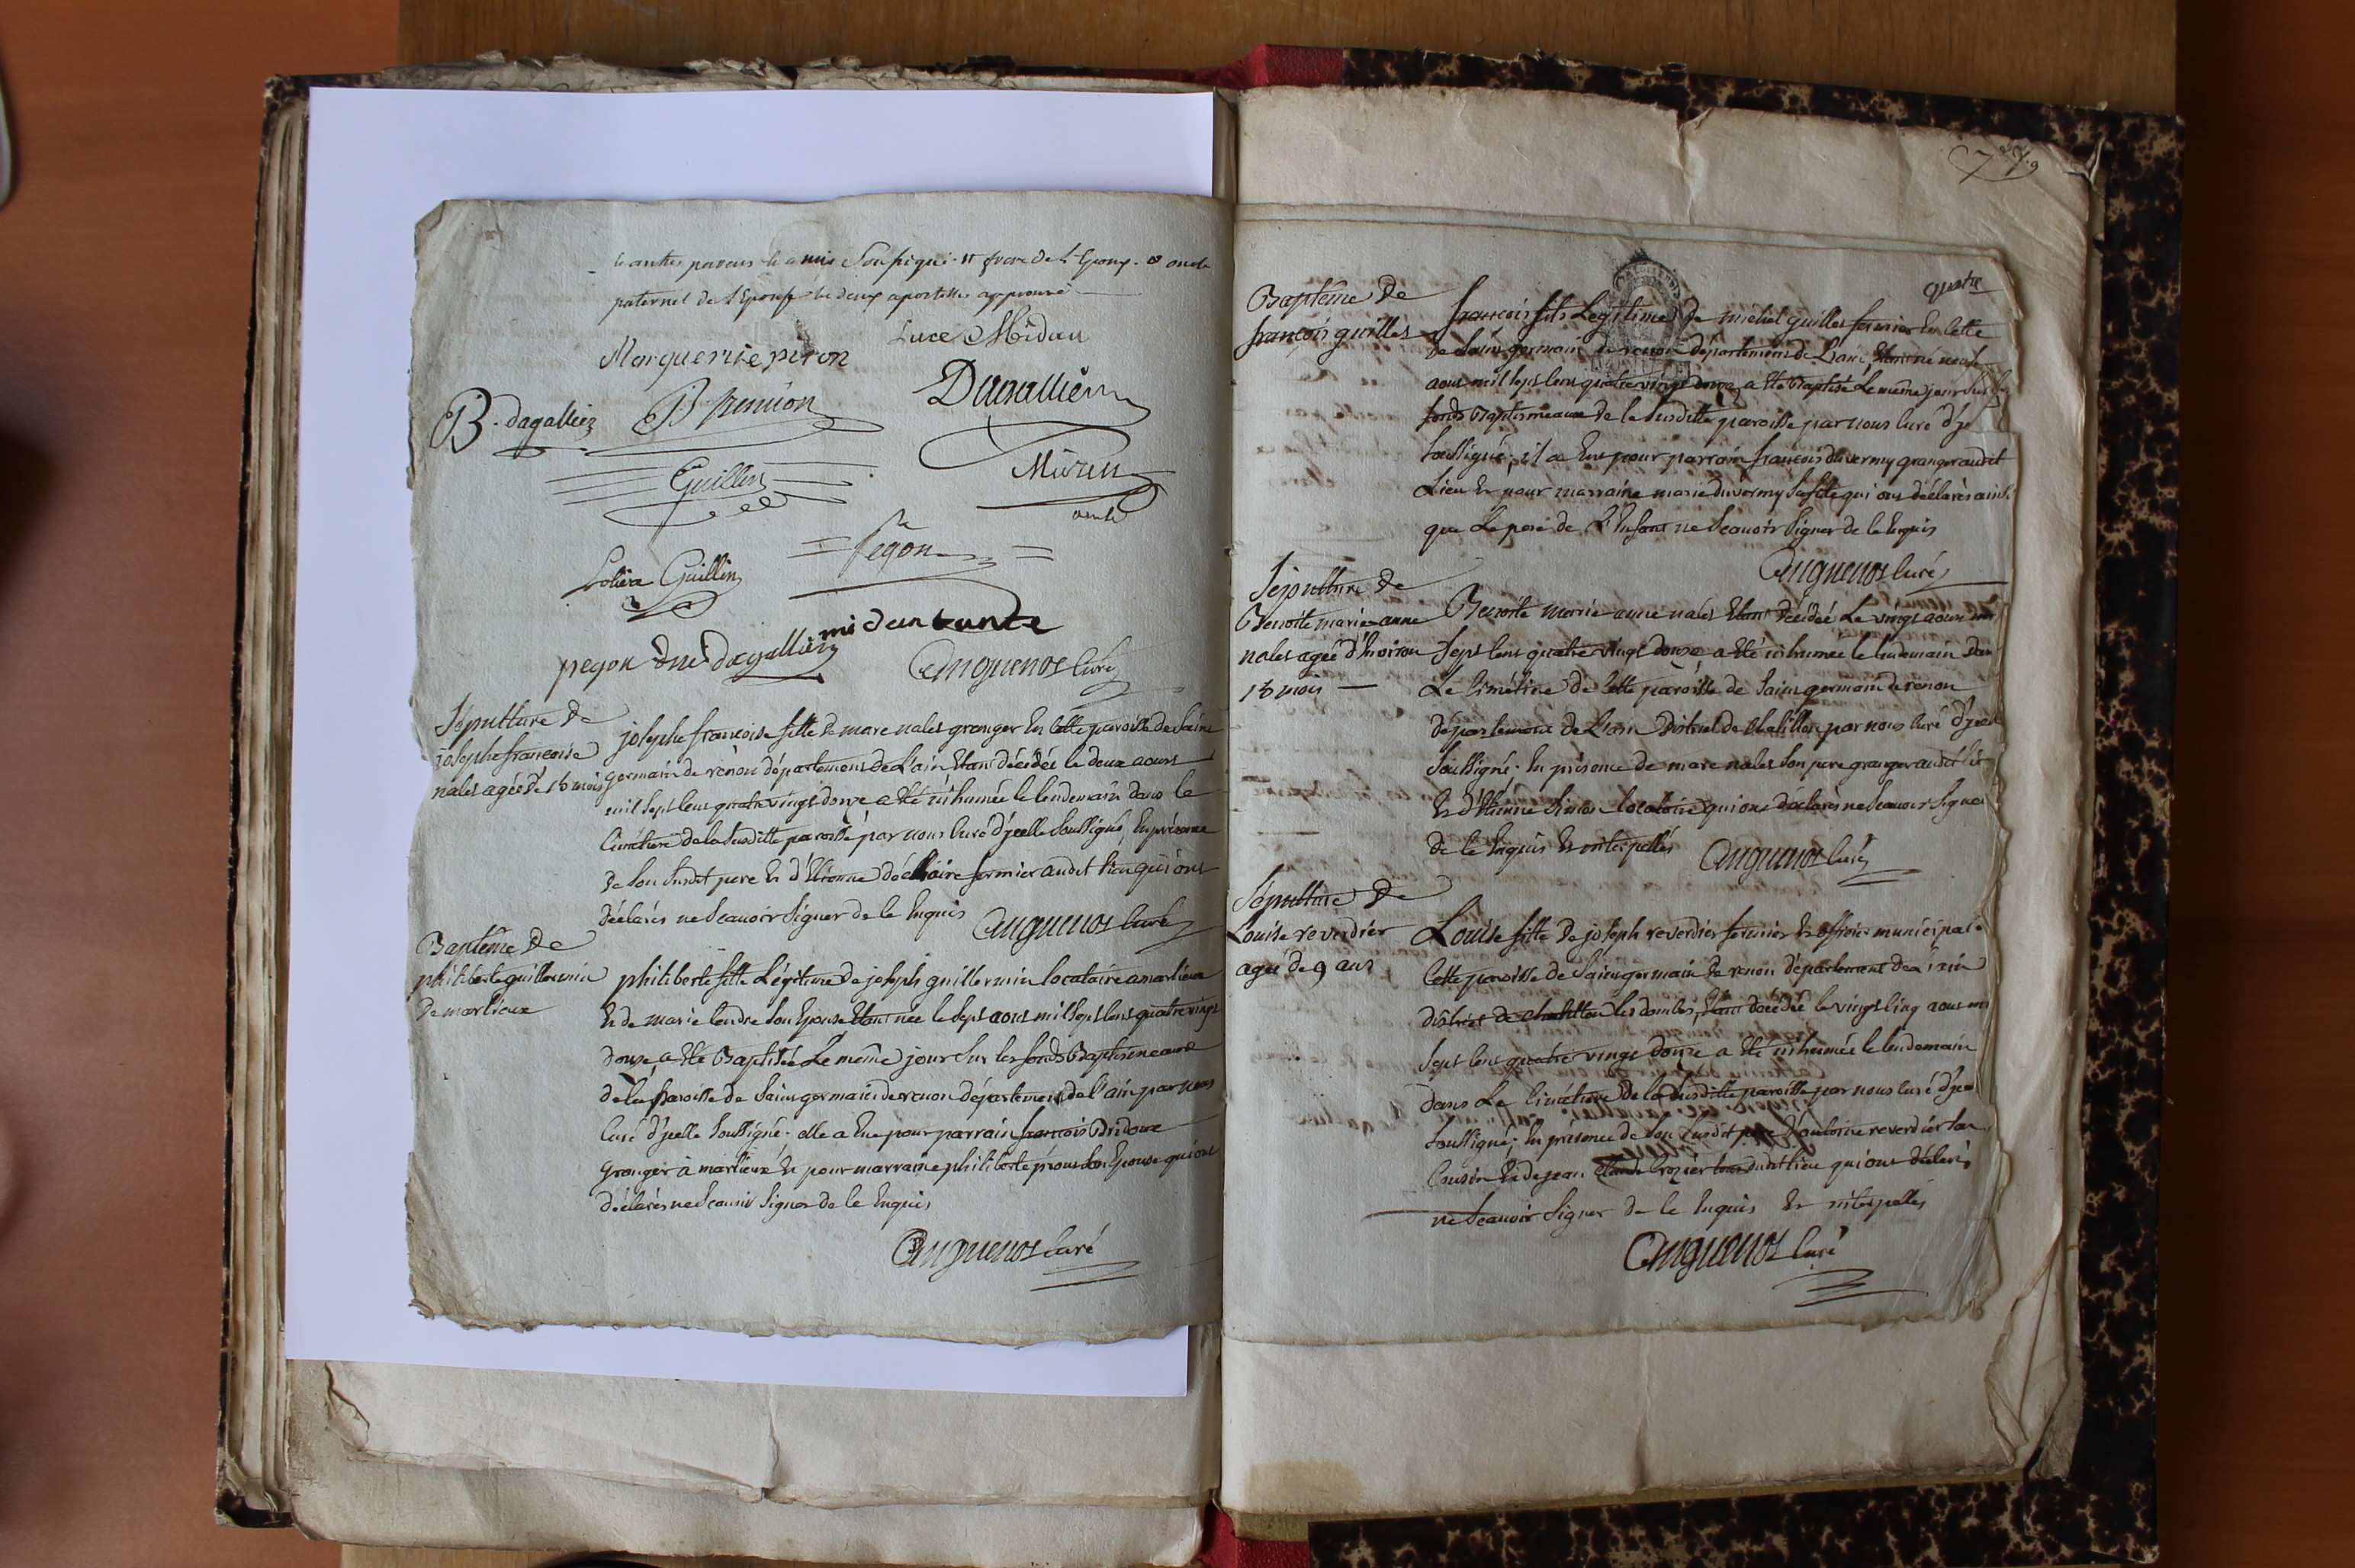 paternel de l'Epouse les deux apostilles approuvé
Luce Midan
Marguerite peron
B. dagallier
Dagallier
Guillin
Guillin
pegon née dagallier
midan tante
Anguenot Curé
Sépulture de
josephe francoise
nales agée de 18 mois
josephe francoise fille de marc nales granger En Cette paroisse de Saint
germain de renon département de L'ain Etant décédée le deux aoust
mil Sept Cent quatre vingt donze a été inhumée le lendemain dans le
Cimétiere de la Susditte paroisse par nous Curé d'jcelle Soussigné, En présence
de Son Susdit pere Et d'Etienne fermier audit lieu qui ont
déclarés ne Scavoir Signer de ce Enquis
Anguenot Curé
Baptême de
philiberte guillermin
de marlieux
philiberte fille Légitime de joseph guillermin locataire a marlieux
Et de marie Son Epouse Etant née le Sept aout mil Sept Cent quatre vingt
douze, a été Baptisée Le même jour Sur les fonds Baptismeaux
de la paroisse de Saint germain de renon département de l'ain par nous
Curé d'jcelle Soussigné. elle a Eue pour parrain francois Bridoux
Granger à marlieux Et pour marraine philiberte Son Epouse qui ont
déclarés ne Scavoir Signer de ce Enquis
Anguenot Curé
quatre
Baptême de
francois guilles
francois fils Legitime de michel guilles fermier En Cette
de Saint germain de renon département de L'ain, Etant né neuf
aout mil Sept Cent quatre vingt douze, a été Baptisé Le même jour Sur les
fonds Baptismeaux de la Susditte paroisse par nous Curé d'jc
Soussigné; il a Eut pour parrain francois duvermy granger audit
Lieu Et pour marraine marie duvermy qui ont déclarés ainsi
que Le pere de L'Enfant ne Scavoir Signer de ce Enquis
Anguenot Curé
Sépulture de
Benoite marie anne
nales agée d'Environ
18 mois
Benoite marie anne nales Etant décédée Le vingt aoust mil
Sept Cent quatre vingt douze a été inhumée le lendemain dans
Le Cimétiere de Cette paroisse de Saint germain de renon
département de L'ain district de Chatillon par nous Curé d'jcell
Soussigné; En présence de marc nales Son pere granger audit
Et d'Etienne locataire qui ont déclarés ne Scavoir Signer
de ce Enquis Et interpellés
Anguenot Curé
Sépulture de
Louise reverdier
agée de 9 ans
Louise fille de joseph reverdier fermier Et officier municipal
Cette paroisse de Saint germain de renon département de l'ain
district de Chatillon les dombes, Etant décédée le vingt Cinq aout mil
Sept Cent quatre vingt douze a été inhumée le lendemain
dans Le Cimétiere de la Susditte paroisse par nous Curé d'jcel
Soussigné; En présence de Son Susdit pere d'antoine reverdier Son
Cousin Et de jean Claude Crozier dudit lieu qui ont déclarés
ne Scavoir Signer de ce Enquis Et interpellés
Anguenot Curé